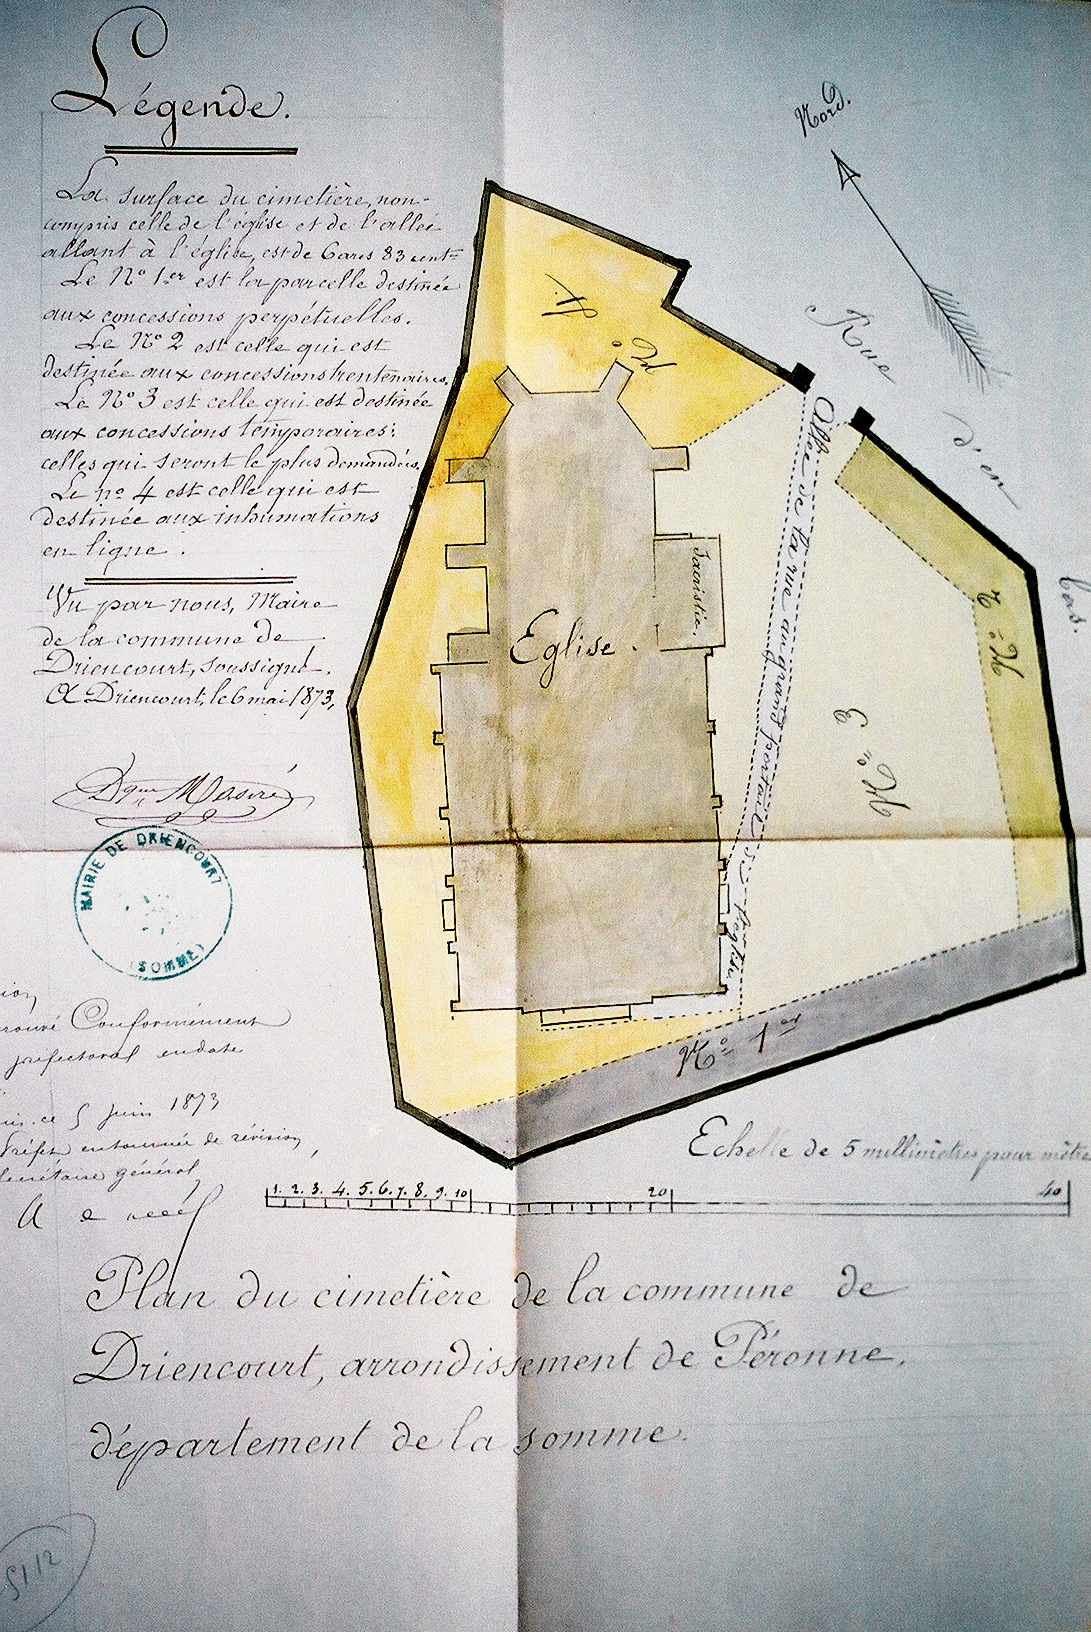 Légende.
La surface du cimetière, non-
compris celle de l'église et de l'allée
allant à l'église, est de 6 ares 83 cent.es
Le No 1.er est la parcelle destinée
aux concessions perpétuelles.
Le No 2 est celle qui est
destinée aux concessions trentenaires.
Le No 3 est celle qui est destinée
aux concessions temporaires:
celles qui seront le plus demandées.
Le no 4 est celle qui est
destinée aux inhumations
en ligne.
Vu par nous, Maire
de la commune de
Driencourt, soussigné.
A Driencourt, le 6 mai 1873,
MAIRIE DE DRIENCOURT
(SOMME)
Conformément
préfectoral en date
ce 5 juin 1873
Préfet en tournée de révision,
Secrétaire général,
Nord.
Rue
d'en
bas.
No 4
Allée de la rue au grand portail de l'église.
Sacristie.
Eglise.
No 2
No 3
No 1er
Echelle de 5 millimètres pour mètre
1. 2. 3. 4. 5. 6. 7. 8. 9. 10 20 40
Plan du cimetière de la commune de
Driencourt, arrondissement de Péronne,
département de la somme.
5112